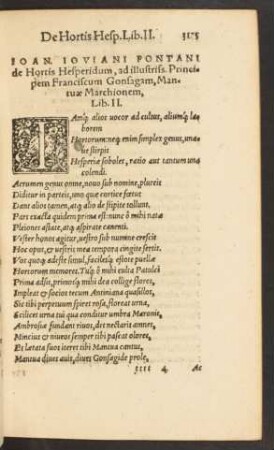 De Hortis Hesp. Lib. II. 315
IOAN. IOVIANI PONTANI
de Hortis Hesperidum, ad illustriss. Princi-
pem Franciscum Gonsagam, Man-
tuæ Marchionem,
Lib. II.
IAmq; alios uocor ad cultus, aliumq; la-
borem
Hortorum: neq; enim simplex genus, una-
ue stirpis
Hesperiæ soboles, ratio aut tantum una
colendi.
Acrumen genus omne, nouo sub nomine, plureis
Diditur in parteis, uno quæ cortice fœtus
Dant alios tamen, atq; alio de stipite tollunt.
Pars exacta quidem prima est: nunc ô mihi natæ
Pleiones astate, atq; aspirate canenti.
Vester honos agitur, uestro sub numine crescit
Hoc opus, & uestris mea tempora cingite sertis.
Vos quoq; adeste simul, facilesq; estote puellæ
Hortorum memores. Tuq; ô mihi culta Patulci
Prima adsis, primosq; mihi dea collige flores,
Impleat & socios tecum Antiniana quasillos,
Sic tibi perpetuum spiret rosa, floreat urna,
Scilicet urna tui qua conditur umbra Maronis,
Ambrosiæ fundant riuos, det nectaris amnes,
Mincius & niueos semper tibi pascat olores,
Et lætata suos iteret tibi Mantua cantus,
Mantua diues auis, diues Gonsagide prole,
4 Ac